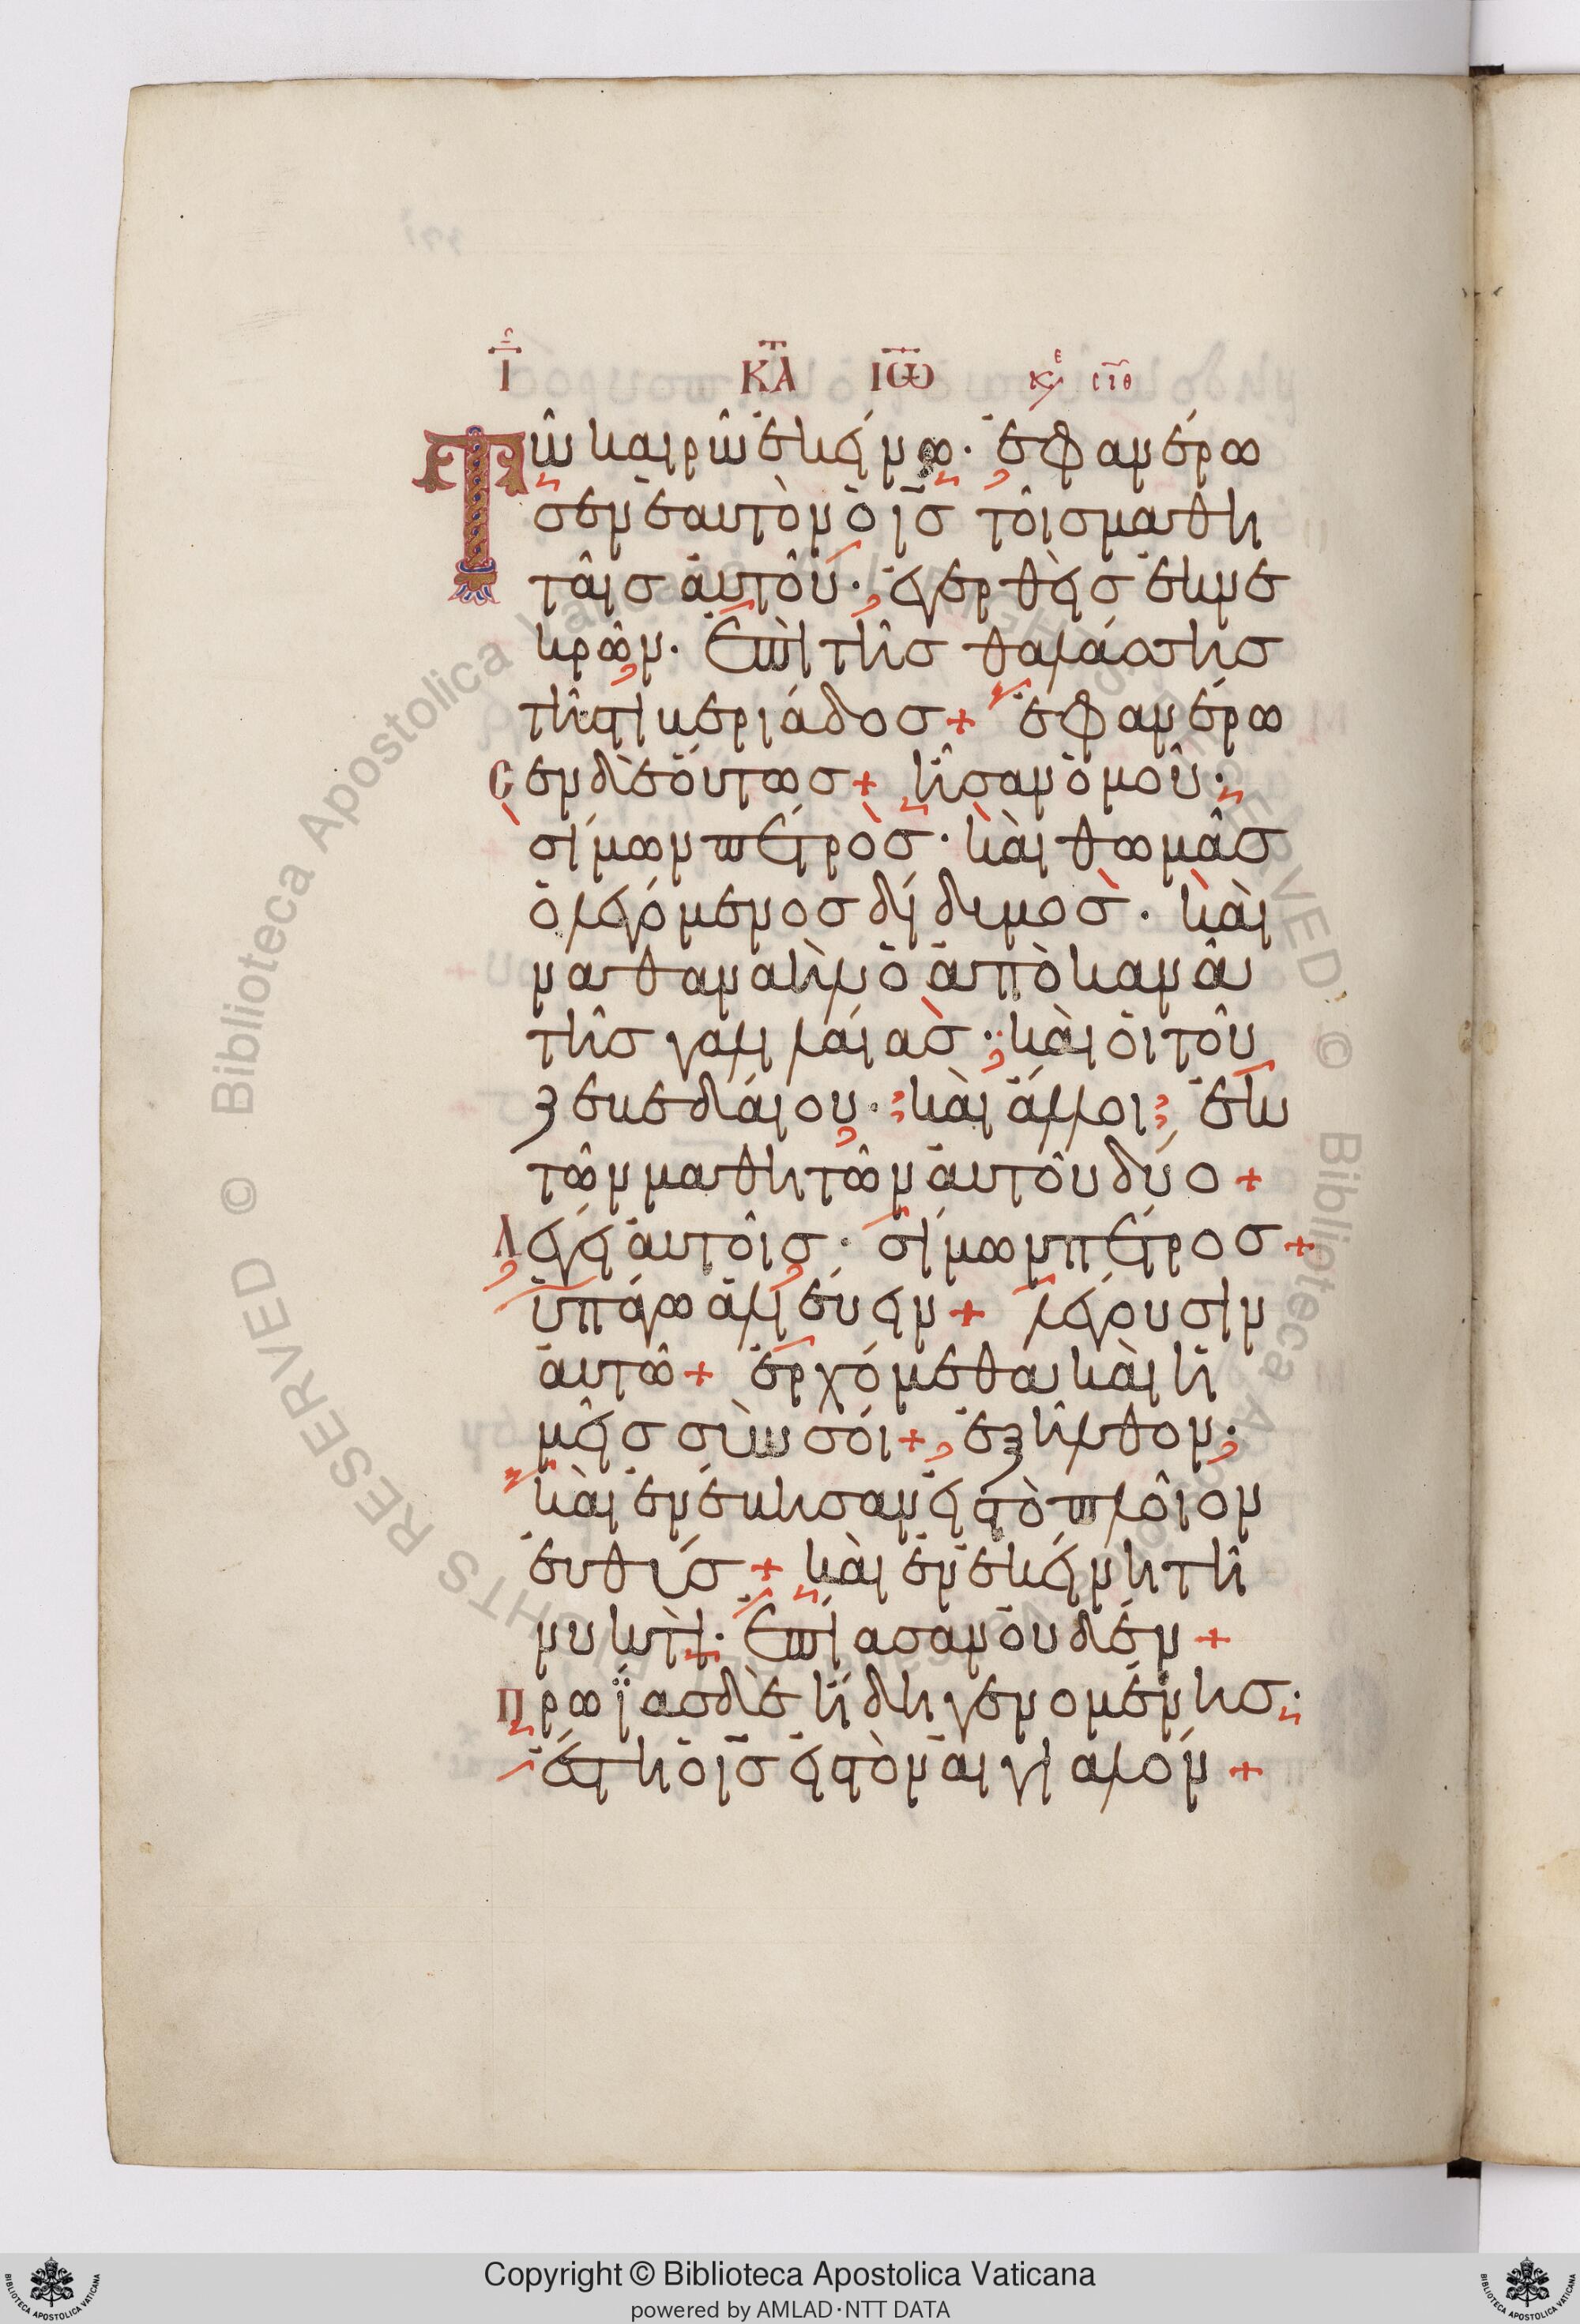 Ι ΚΑΤ ΙΩ κε σιθ
Τῶ καιρῶ ἐκείνω· ἐφανέρω
σεν ἑαυτὸν ὁ ις τοῖς μαθη
ταῖς αὐτοῦ· ἐγερθεὶς ἐκ νε
κρῶν· ἐπὶ τῆς θαλάσσης
τῆς τιβεριάδος + ἐφανέρω
σεν δὲ οὕτως + ἦσαν ὁμοῦ·
σίμων πέτρος· καὶ θωμᾶς
ὁ λεγόμενος δίδυμος· καὶ
ναθαναὴλ ὁ ἀπὸ κανᾶ
τῆς γαλιλαίας· καὶ οἱ τοῦ
ζεβεδαίου· καὶ ἄλλοι ἐκ
τῶν μαθητῶν αὐτοῦ δύο +
Λέγει αὐτοῖς· σίμων πέτρος +
ὑπάγω ἁλιεύειν + λέγουσιν
αὐτῶ + ἐρχόμεθα καὶ ἡ
μεῖς σὺν σοί + ἐξῆλθον·
καὶ ἐνέβησαν εἰς τὸ πλοῖον
εὐθύς + καὶ ἐν ἐκείνη τῆ
νυκτὶ· ἐπίασαν οὐδέν +
Πρωΐας δὲ ἤδη γενομένης·
ἔστη ὁ ις εἰς τὸν αἰγιαλόν +
Copyright © Biblioteca Apostolica Vaticana
powered by AMLAD·NTT DATA